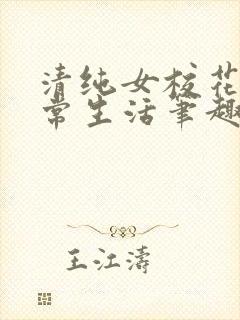 清纯女校花
常生活笔趣
王江涛